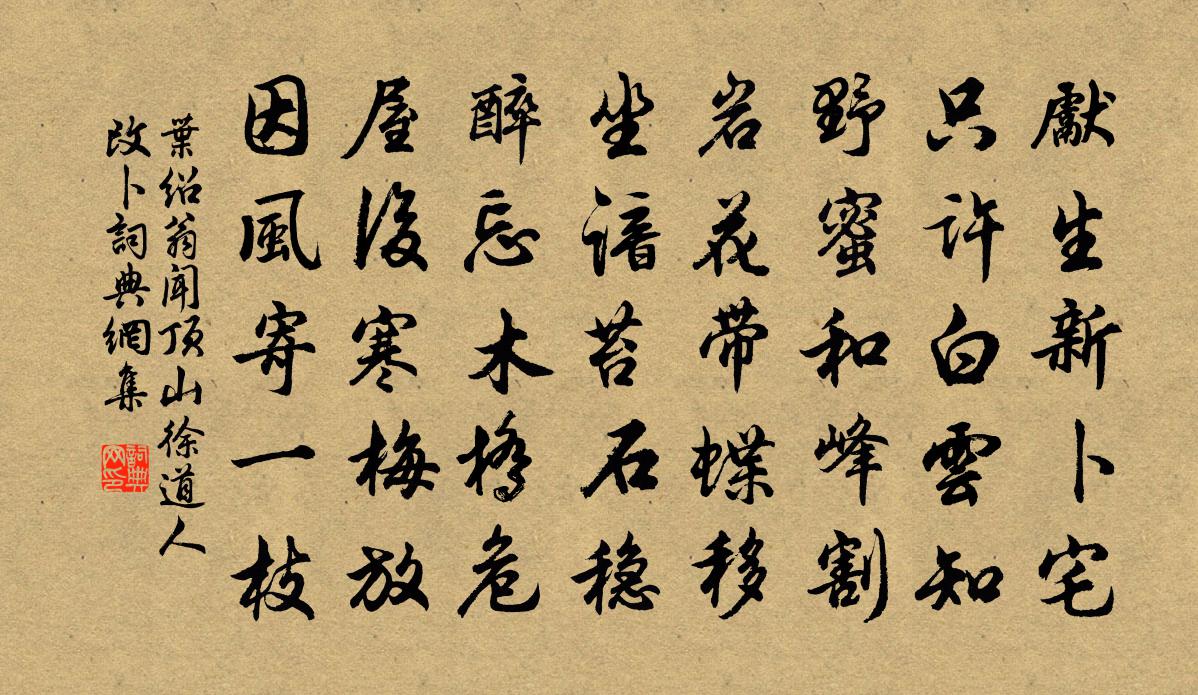 獻生新卜宅
只許白雲知
野蜜和峰割
岩花带蝶移
坐諳苔石稳
醉忘木橋危
屋後寒梅放
因風寄一枝
葉紹翁聞頂山徐道人
改卜詞典網集
詞典网印